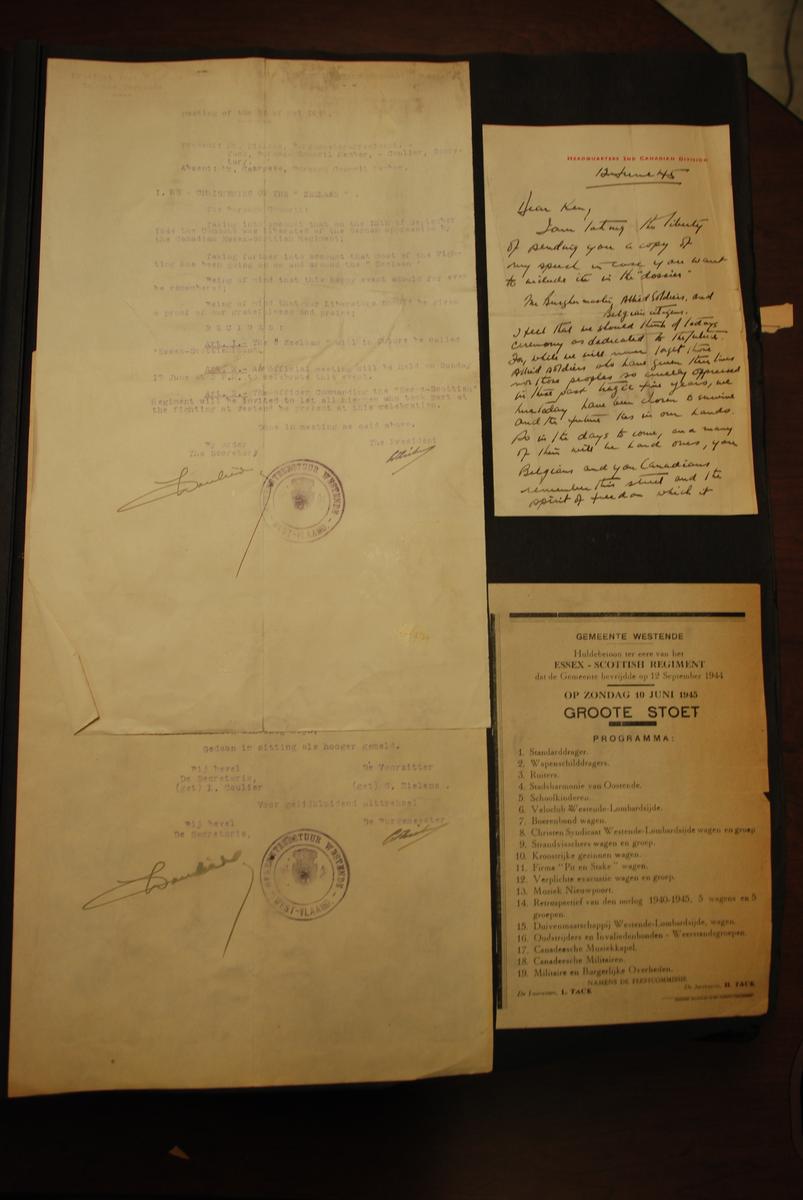 meeting of the
Absent:
I. RE - CHRISTENING OF THE " ZEELAAN " .
The Borough Council;
Taking into account that on the 12th of September
1944 the Commune was liberated of the German oppression by
the Canadian Essex-Scottish Regiment;
Taking further into account that most of the Figh-
ting has been going on on and around the " Zeelaan "
Being of mind that this happy event should for ever
be remembered;
Being of mind that our liberators should be given
a proof of our gratefulness and praise;
D E C I D E S :
Art. 1.- The " Zeelaan " will in future be called
"Essex-Scottishlaan.
Art. 2.- An official meeting will be held on Sunday
June at to celebrate this event.
Art. 3.- The Officer Commanding the "Essex-Scottish"
Regiment will be invited to let all his men who took part at
the fighting at Westend be present at this celebration.
Done in meeting as said above.
By order
The Secretary
The President
GEMEENTEBESTUUR WESTENDE
WEST-VLAAND.
Gedaan in zitting als hooger gemeld.
Bij bevel
De Secretaris,
(get) L. Coulier
De Voorzitter
(get) G. Zielens .
Voor gelijkluidend uittreksel
Bij bevel
De Secretaris,
De Burgemeester
GEMEENTEBESTUUR WESTENDE
WEST-VLAAND.
HEADQUARTERS 2ND CANADIAN DIVISION
12 June 45
Dear Ken,
I am taking the liberty
of sending you a copy of
my speech in case you want
to include it in the "dossier"
The Burghermaster, Allied Soldiers, and
Belgian citizens.
I feel that we should think of todays
ceremony as dedicated to the future.
For, while we will never forget those
Allied soldiers who have given their lives
nor those peoples so cruelly oppressed
in these past tragic five years, we
here today have been chosen to survive
and the future lies in our hands.
So in the days to come, and many
of them will be hard ones, you
Belgians and you Canadians
remember this street and the
spirit of freedom which it
GEMEENTE WESTENDE
Huldebetoon ter eere van het
ESSEX - SCOTTISH REGIMENT
dat de Gemeente bevrijdde op 12 September 1944
OP ZONDAG 10 JUNI 1945
GROOTE STOET
PROGRAMMA:
1. Standarddrager.
2. Wapenschilddragers.
3. Ruiters.
4. Stadsharmonie van Oostende.
5. Schoolkinderen.
6. Veloclub Westende-Lombardsijde.
7. Boerenbond wagen.
8. Christen Syndicaat Westende-Lombardsijde wagen en groep
9. Strandvisschers wagen en groep.
10. Kroostrijke gezinnen wagen.
11. Firma "Pit en Stake" wagen.
12. Verplichte evacuatie wagen en groep.
13. Muziek Nieuwpoort.
14. Retrospectief van den oorlog 1940-1945, 5 wagens en 5
groepen.
15. Duivenmaatschappij Westende-Lombardsijde, wagen.
16. Oudstrijders en Invaliedenbonden - Weerstandsgroepen.
17. Canadeesche Muziekkapel.
18. Canadeesche Militairen.
19. Militaire en Burgerlijke Overheden.
NAMENS DE FEESTCOMMISSIE
L. TACK
H. TACK